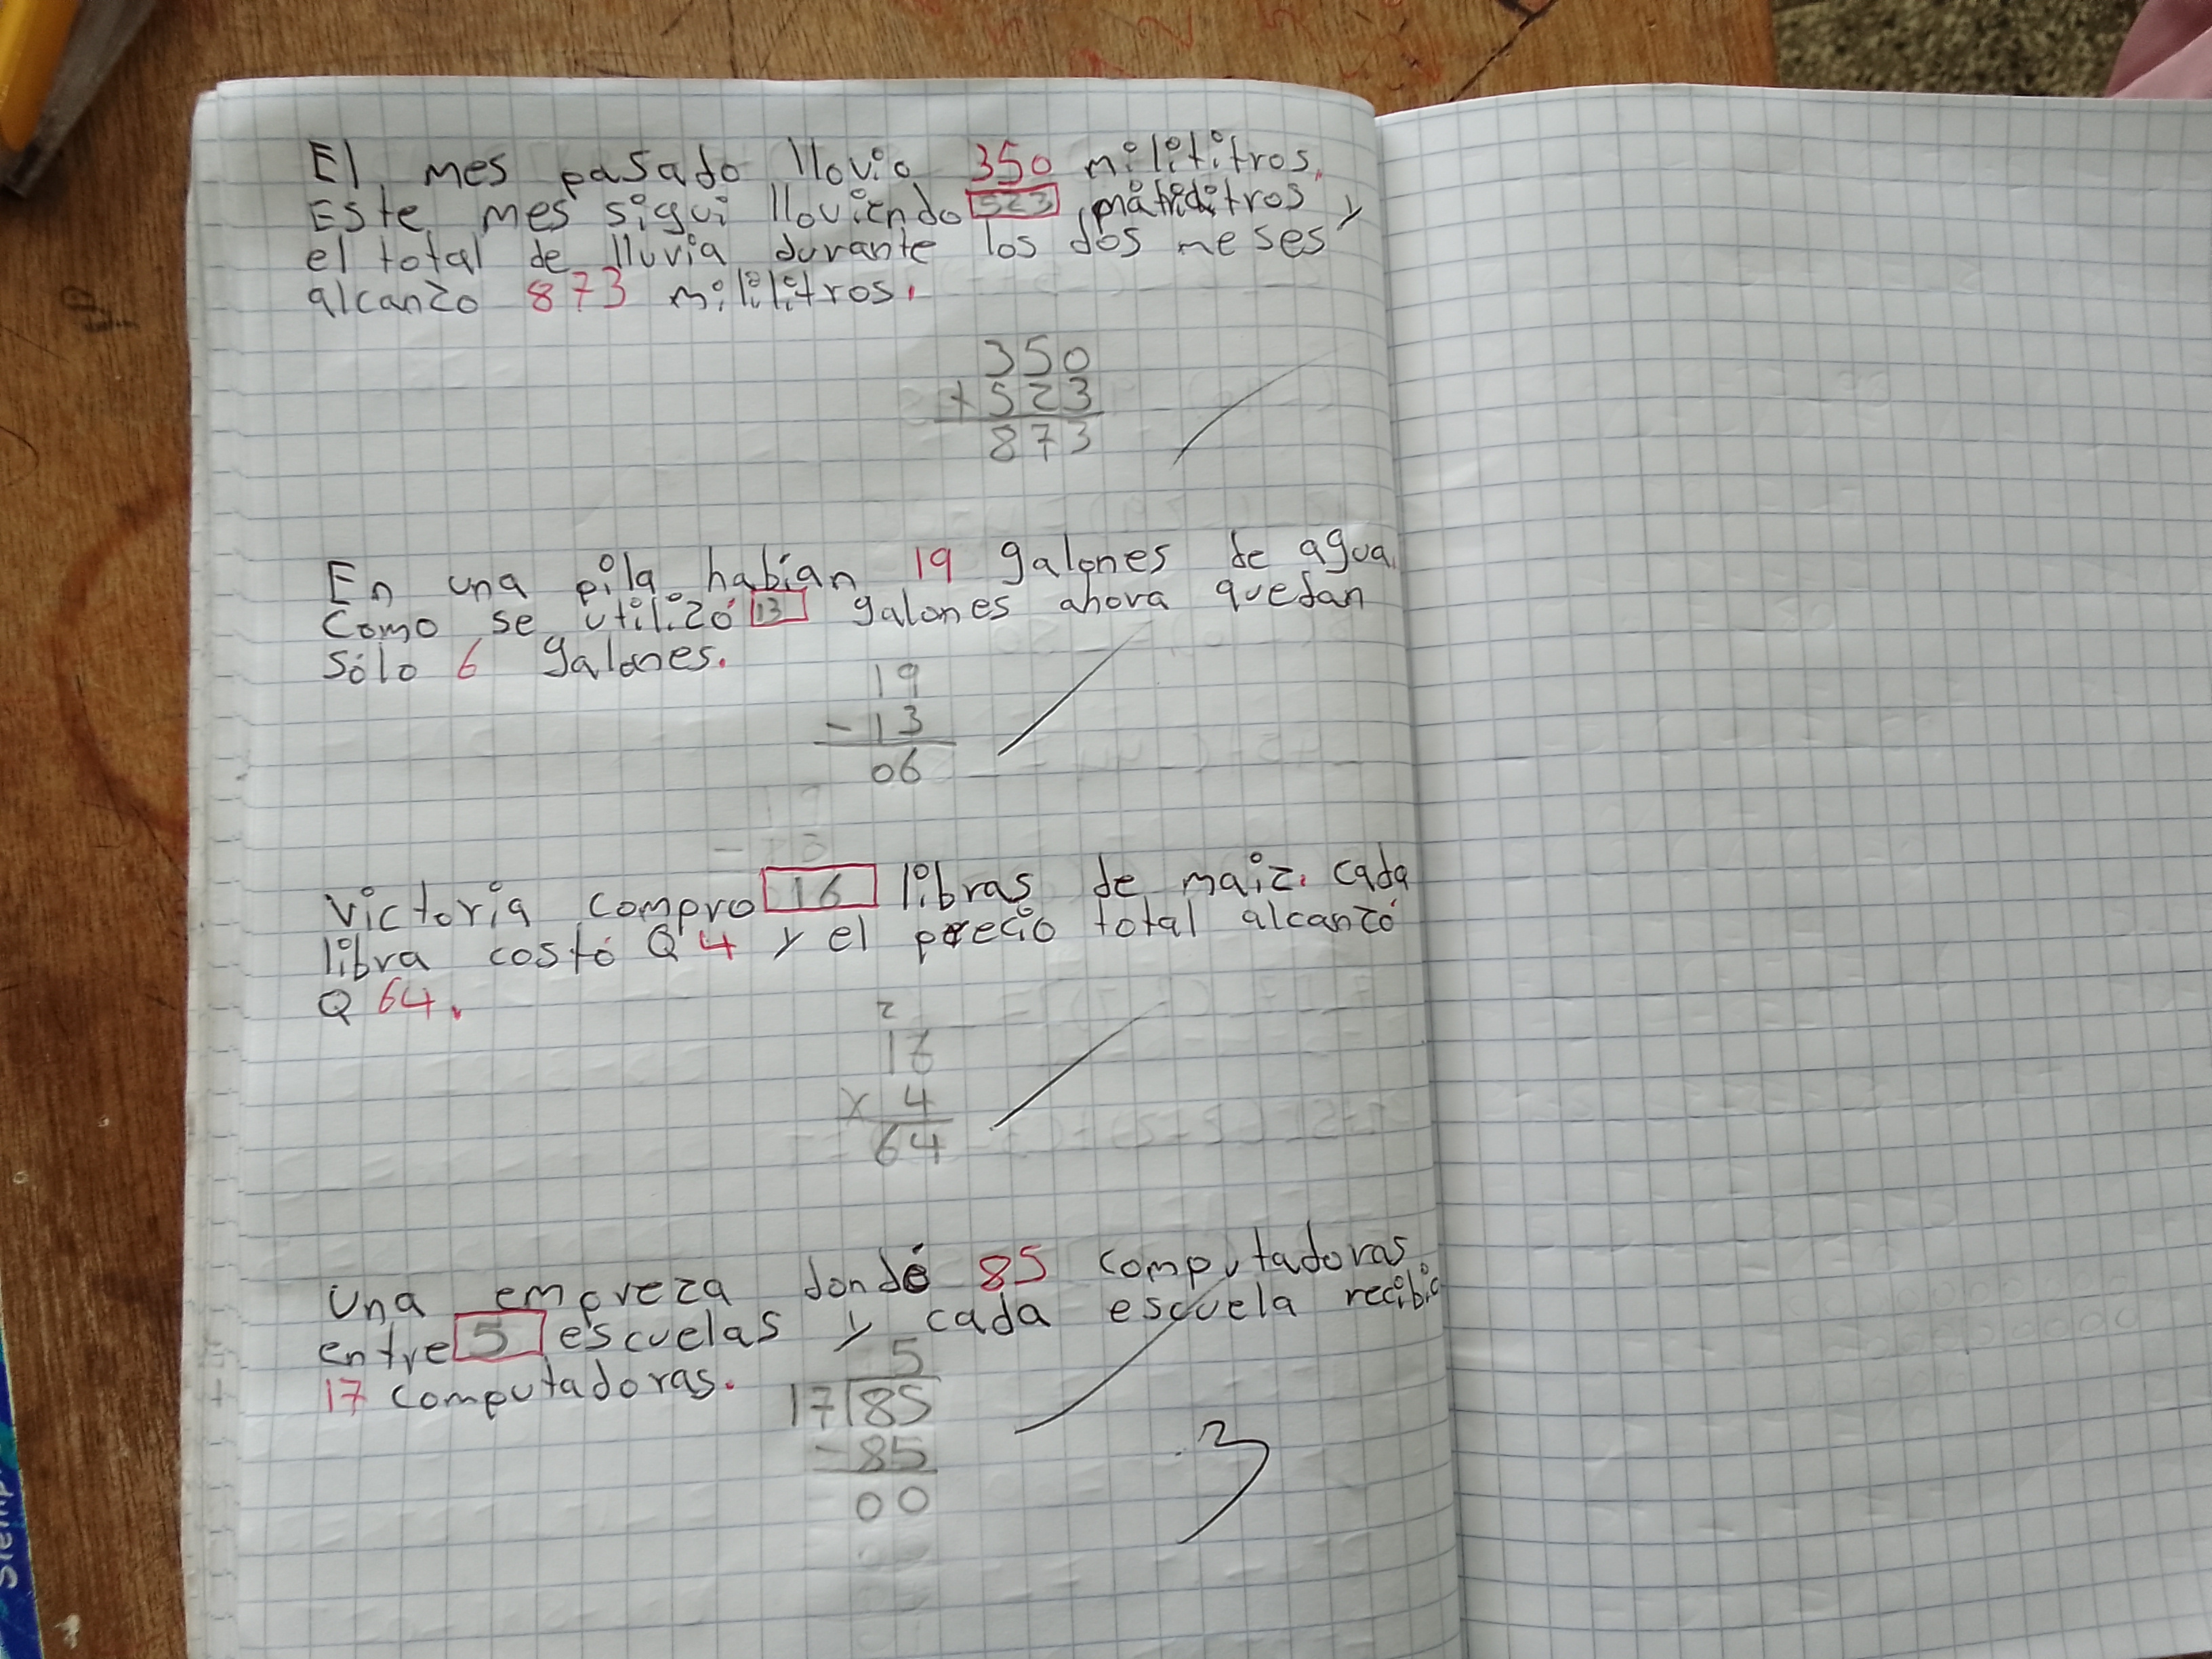 El mes pasado llovio 350 mililitros.
Este mes sigui lloviendo 523 y
el total de lluvia durante los dos meses
alcanzo 873 mililitros.
350
+ 523
873
En una pila habían 19 galones de agua.
Como se utilizó 13 galones ahora quedan
sólo 6 galones.
19
- 13
06
Victoria compro 16 libras de maiz. cada
libra costó Q 4 y el precio total alcanzó
Q 64.
2
16
x 4
64
Una empreza dondé 85 computadoras
entre 5 escuelas y cada escuela recibio
17 computadoras.
5
17 85
- 85
00
3